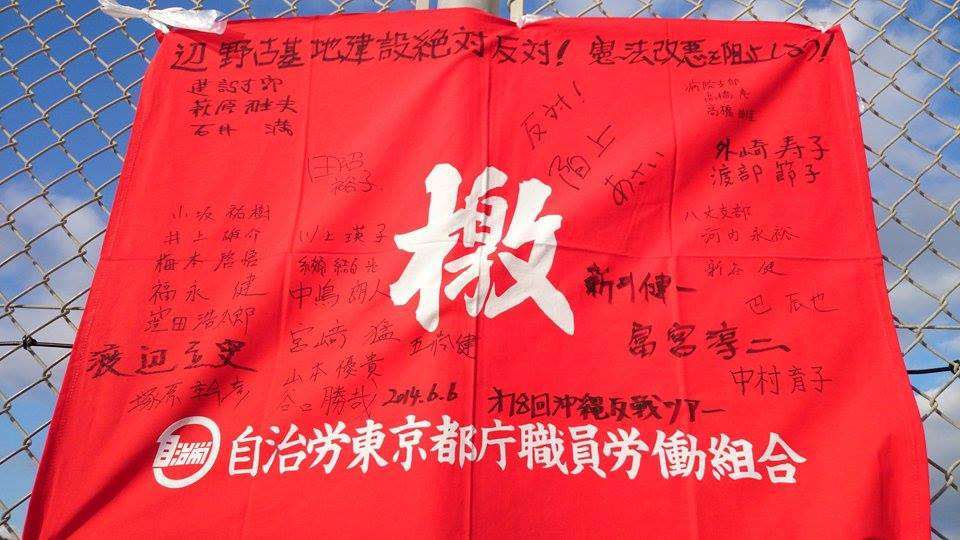 辺野古基地建設絶対反対! 憲法改悪を阻止しよう!
建設支部
萩原雅夫
石井 満
田沼
裕子
小坂祐樹
井上雄介
梅本啓
福永 健
窪田浩太郎
渡辺
塚原
川上瑛子
中嶋朗人
宮崎 猛
五嶋健
山本優貴
谷口勝哉
2014.6.6
反対!
あさい
檄
病院支部
高橋
外崎寿子
渡部節子
八丈支部
河内永裕
新谷 健
新川健一
巴 辰也
富宮淳二
中村育子
第18回沖縄反戦ツアー
自治労
自治労東京都庁職員労働組合